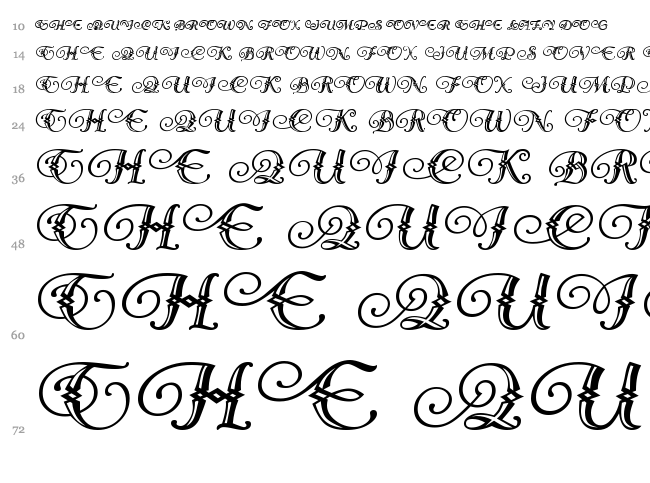 10 THE QUICK BROWN FOX JUMPS OVER THE LAZY DOG
14 THE QUICK BROWN FOX JUMPS OVER
18 THE QUICK BROWN FOX JUMPS
24 THE QUICK BROWN FOX
36 THE QUICK BR
48 THE QUIC
60 THE QUI
72 THE QU